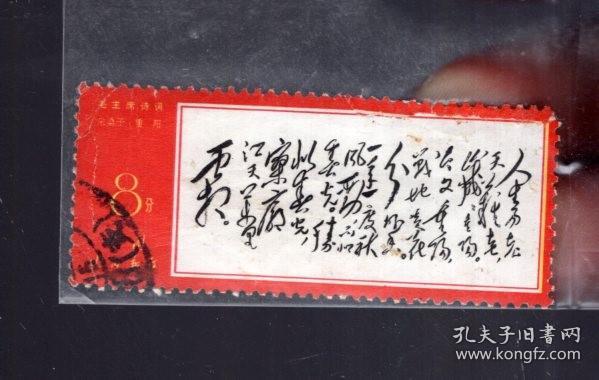 毛主席诗词
采桑子·重阳
8分
人生易老
天难老，
岁岁重阳。
今又重阳，
战地黄花
分外香。
一年一度秋
风劲，不似
春光。胜
似春光，
寥廓
江天万里
霜。
孔夫子旧书网
www.kongfz.com